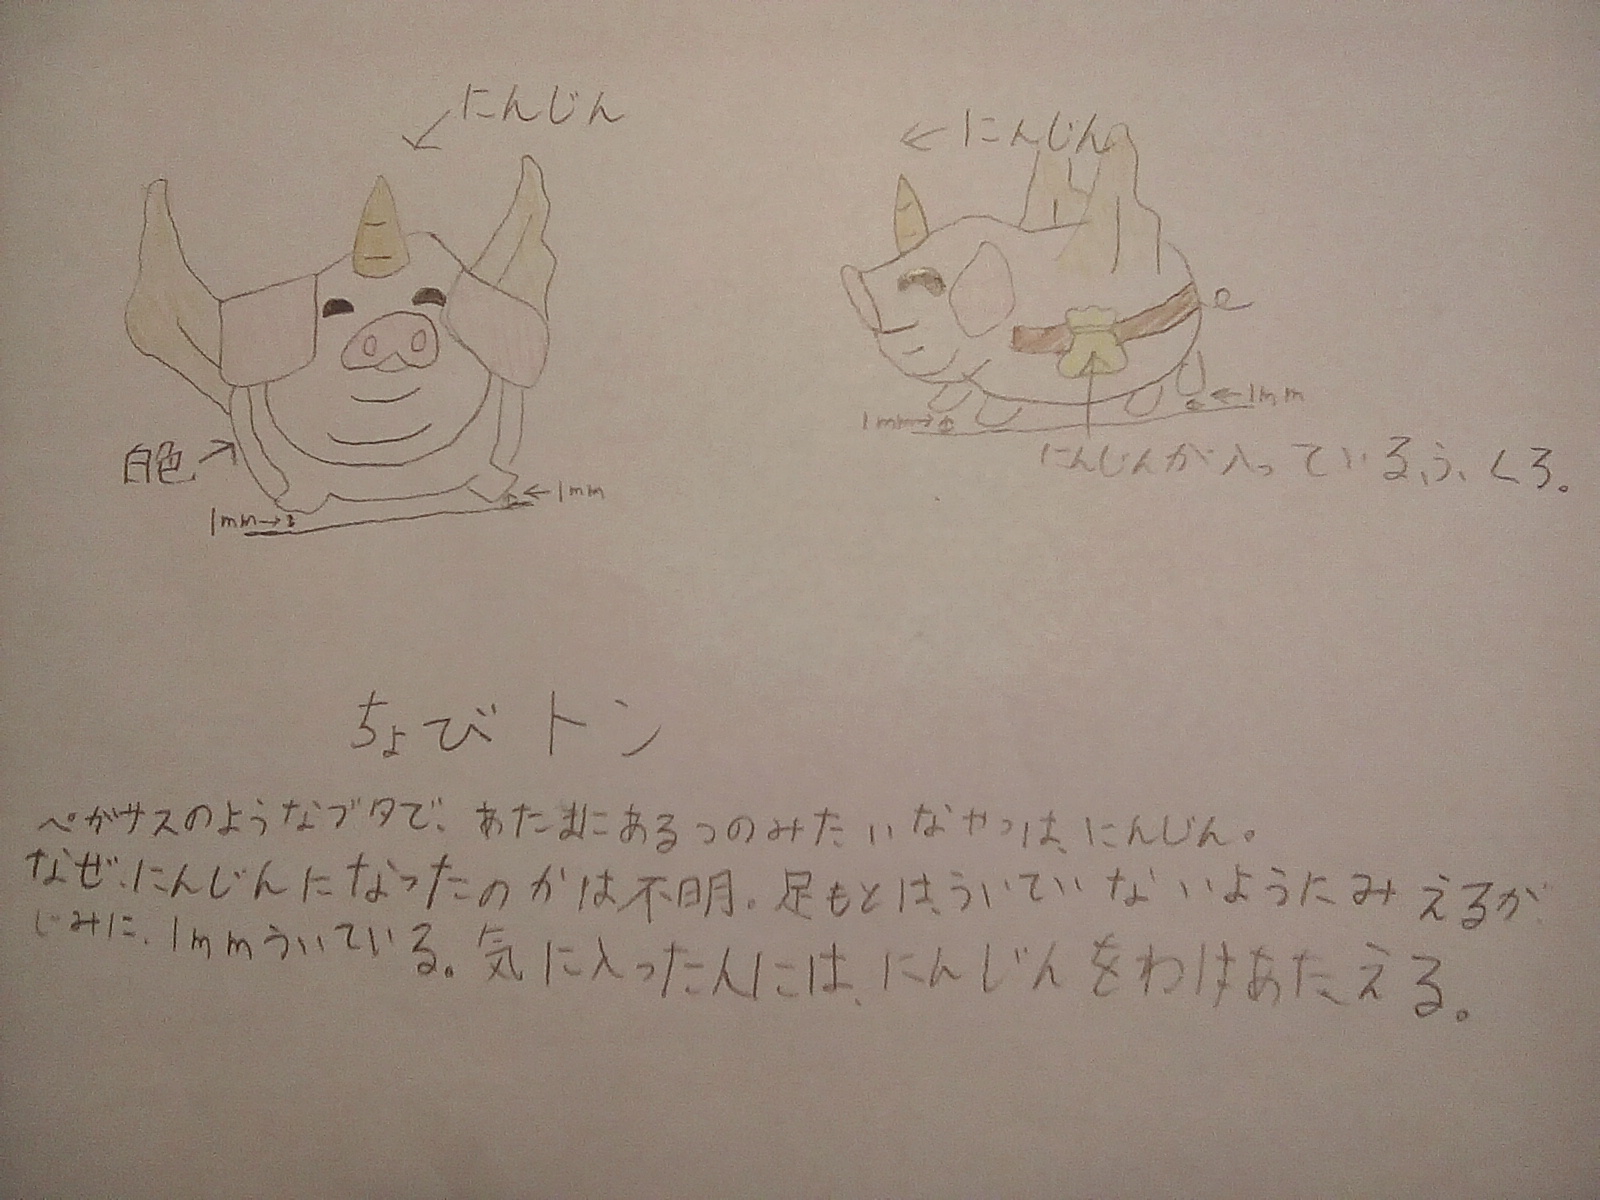 にんじん
にんじん
白色
1mm
1mm
1mm
1mm
にんじんが入っているふくろ。
ちょびトン
ペガサスのようなブタで、あたまにあるつのみたいなやつは、にんじん。
なぜ、にんじんになったのかは不明。足もとは、ういていないようにみえるが、
じみに、1mmういている。気に入った人には、にんじんをわけあたえる。